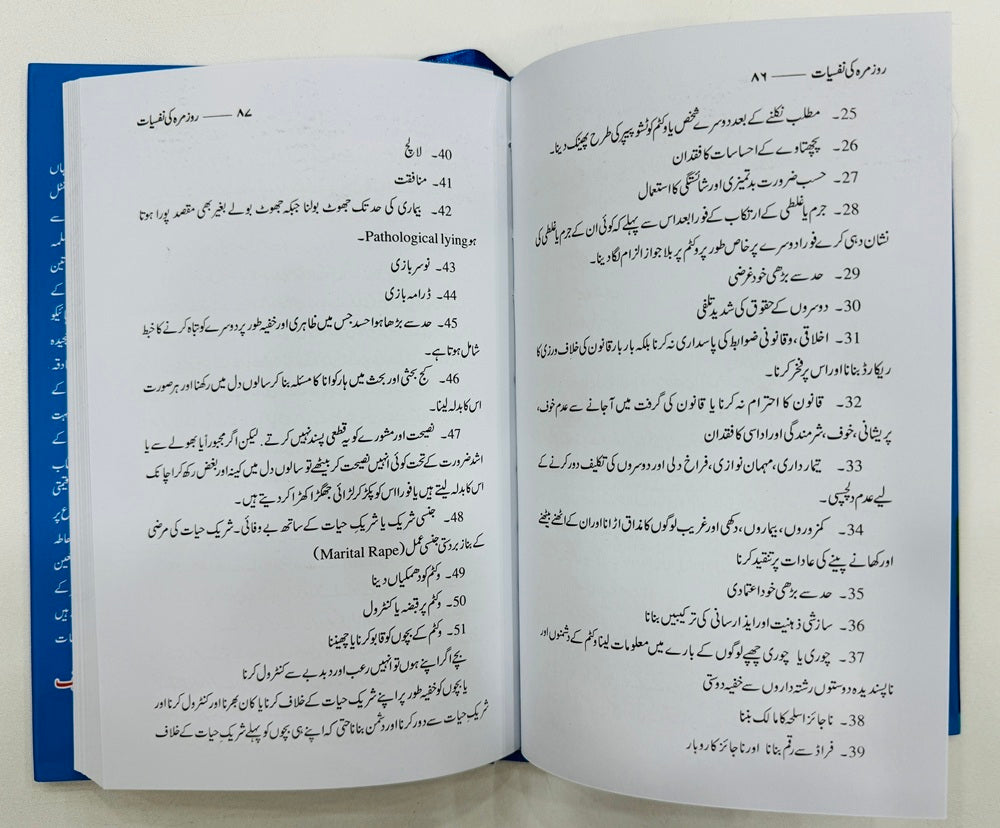 روزمرہ کی نفسیات —— ۸۶
25۔ مطلب نکلنے کے بعد دوسرے شخص یا وکٹم کو ٹشو پیپر کی طرح پھینک دینا۔
26۔ پچھتاوے کے احساسات کا فقدان
27۔ حسب ضرورت بدتمیزی اور شائستگی کا استعمال
28۔ جرم یا غلطی کے ارتکاب کے فورا بعد اس سے پہلے کہ کوئی ان کے جرم یا غلطی کی
نشان دہی کرے فورا دوسرے پر خاص طور پر وکٹم پر بلا جواز الزام لگا دینا۔
29۔ حد سے بڑھی خود غرضی
30۔ دوسروں کے حقوق کی شدید تلفی
31۔ اخلاقی ، و قانونی ضوابط کی پاسداری نہ کرنا بلکہ بار بار قانون کی خلاف ورزی کا
ریکارڈ بنانا اور اس پر فخر کرنا۔
32۔ قانون کا احترام نہ کرنا یا قانون کی گرفت میں آجانے سے عدم خوف،
پریشانی، خوف، شرمندگی اور اداسی کا فقدان
33۔ تیمار داری، مہمان نوازی، فراخ دلی اور دوسروں کی تکلیف دور کرنے کے
لیے عدم دلچسپی۔
34۔ کمزوروں، بیماروں، دکھی اور غریب لوگوں کا مذاق اڑانا اور ان کے اٹھنے بیٹھنے
اور کھانے پینے کی عادات پر تنقید کرنا
35۔ حد سے بڑھی خود اعتمادی
36۔ سازشی ذہنیت اور ایذا رسانی کی ترکیبیں بنانا
37۔ چوری یا چوری چھپے لوگوں کے بارے میں معلومات لینا وکٹم کے دشمنوں اور
ناپسندیدہ دوستوں رشتہ داروں سے خفیہ دوستی
38۔ ناجائز اسلحہ کا مالک بننا
39۔ فراڈ سے رقم بنانا اور ناجائز کاروبار
۸۷ —— روزمرہ کی نفسیات
40۔ لالچ
41۔ منافقت
42۔ بیماری کی حد تک جھوٹ بولنا جبکہ جھوٹ بولے بغیر بھی مقصد پورا ہوتا
ہو Pathological lying۔
43۔ نوسر بازی
44۔ ڈرامہ بازی
45۔ حد سے بڑھا ہوا حسد جس میں ظاہری اور خفیہ طور پر دوسرے کو تباہ کرنے کا خبط
شامل ہوتا ہے۔
46۔ کج بحثی اور بحث میں ہار کو انا کا مسئلہ بنا کر سالوں دل میں رکھنا اور ہر صورت
اس کا بدلہ لینا۔
47۔ نصیحت اور مشورے کو یہ قطعی پسند نہیں کرتے. لیکن اگر مجبوراً یا بھولے سے یا
اشد ضرورت کے تحت کوئی انہیں نصیحت کر بیٹھے تو سالوں دل میں کینہ اور بغض رکھ کر اچانک
اس کا بدلہ لیتے ہیں یا فورا اس کو پکڑ کر لڑائی جھگڑا کھڑا کر دیتے ہیں۔
48۔ جنسی شریک یا شریک حیات کے ساتھ بے وفائی۔ شریک حیات کی مرضی
کے بنا زبردستی جنسی عمل (Marital Rape)
49۔ وکٹم کو دھمکیاں دینا
50۔ وکٹم پر قبضہ یا کنٹرول
51۔ وکٹم کے بچوں کو قابو کرنا یا چھیننا
بچے اگر اپنے ہوں تو انہیں رعب اور دبدبے سے کنٹرول کرنا
یا بچوں کو خفیہ طور پر اپنے شریک حیات کے خلاف کرنا یا کان بھرنا اور کنٹرول کرنا اور
شریکِ حیات سے دور کرنا اور دشمن بنانا حتی کہ اپنے ہی بچوں کو پہلے شریکِ حیات کے خلاف